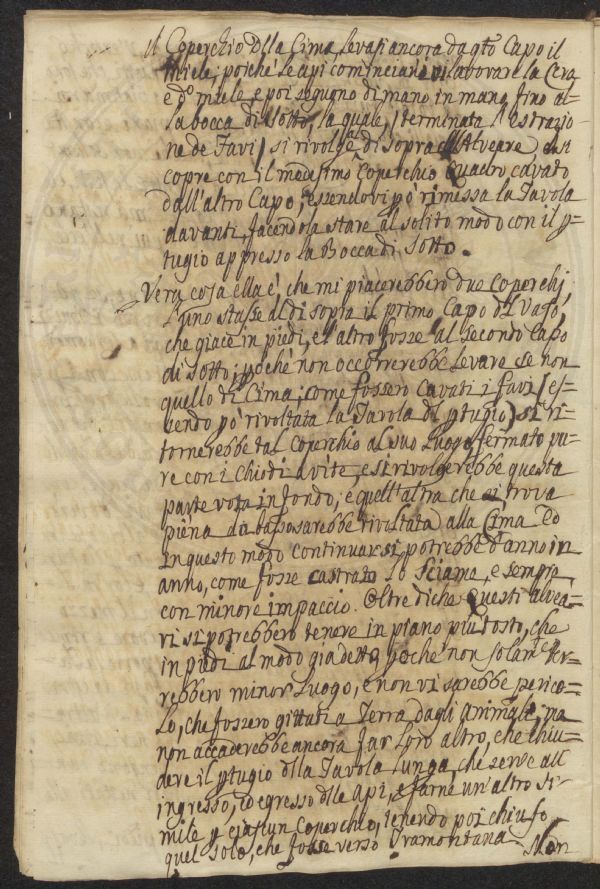 il Coperchio dlla Cima, levasi ancora da qto Capo il
Miele; poiche le api cominciano vi lavorare la Cera
e do miele, e poi seguono di mano in mano fino al=
la bocca di sotto, la quale, (terminata l'estrazio=
ne de Favi) si rivolge di sopra all'Alveare e si
copre con il medesimo Coperchio Quadro cavato
dall'altro Capo; essendovi pò rimessa la Tavola
davanti facendola stare al solito modo con il p=
tugio appresso la Bocca di sotto.
Vera cosa ella è, che mi piacerebbero due Coperchi,
l'uno stasse al di sopra il primo Capo dl Vaso,
che giace in piedi, e l'altro fosse al secondo Capo
di sotto; poiche non occorrerebbe levare se non
quello di Cima; come fossero cavati i favi (es=
sendo pò rivoltata la Tavola dl ptugio) si ri=
tornerebbe tal Coperchio al suo Luogo fermato pu=
re con i chiodi a vite, e si rivolgerebbe questa
parte vota in fondo; e quell'altra che si trova
piena da basso sarebbe rivoltata alla Cima. Ed
in questo modo continuar si potrebbe d'anno in
anno, come fosse castrato lo Sciame, e sempre
con minore impaccio. Oltre di che Questi alvea=
ri si potrebbero tenere in piano più tosto, che
in piedi al modo già detto, poche non solamte ter=
rebbero minor Luogo, e non vi sarebbe perico=
lo, che fossero gittati a Terra dagli animali, ma
non accaderebbe ancora far loro altro, che chiu=
dere il ptugio dlla Tavola lunga, che serve all'
ingresso, ed egresso dlle Api, e farne un'altro si=
mile p ciascun Coperchio, tenendo poi chiuso
quel solo, che fosse verso Tramontana.
Non